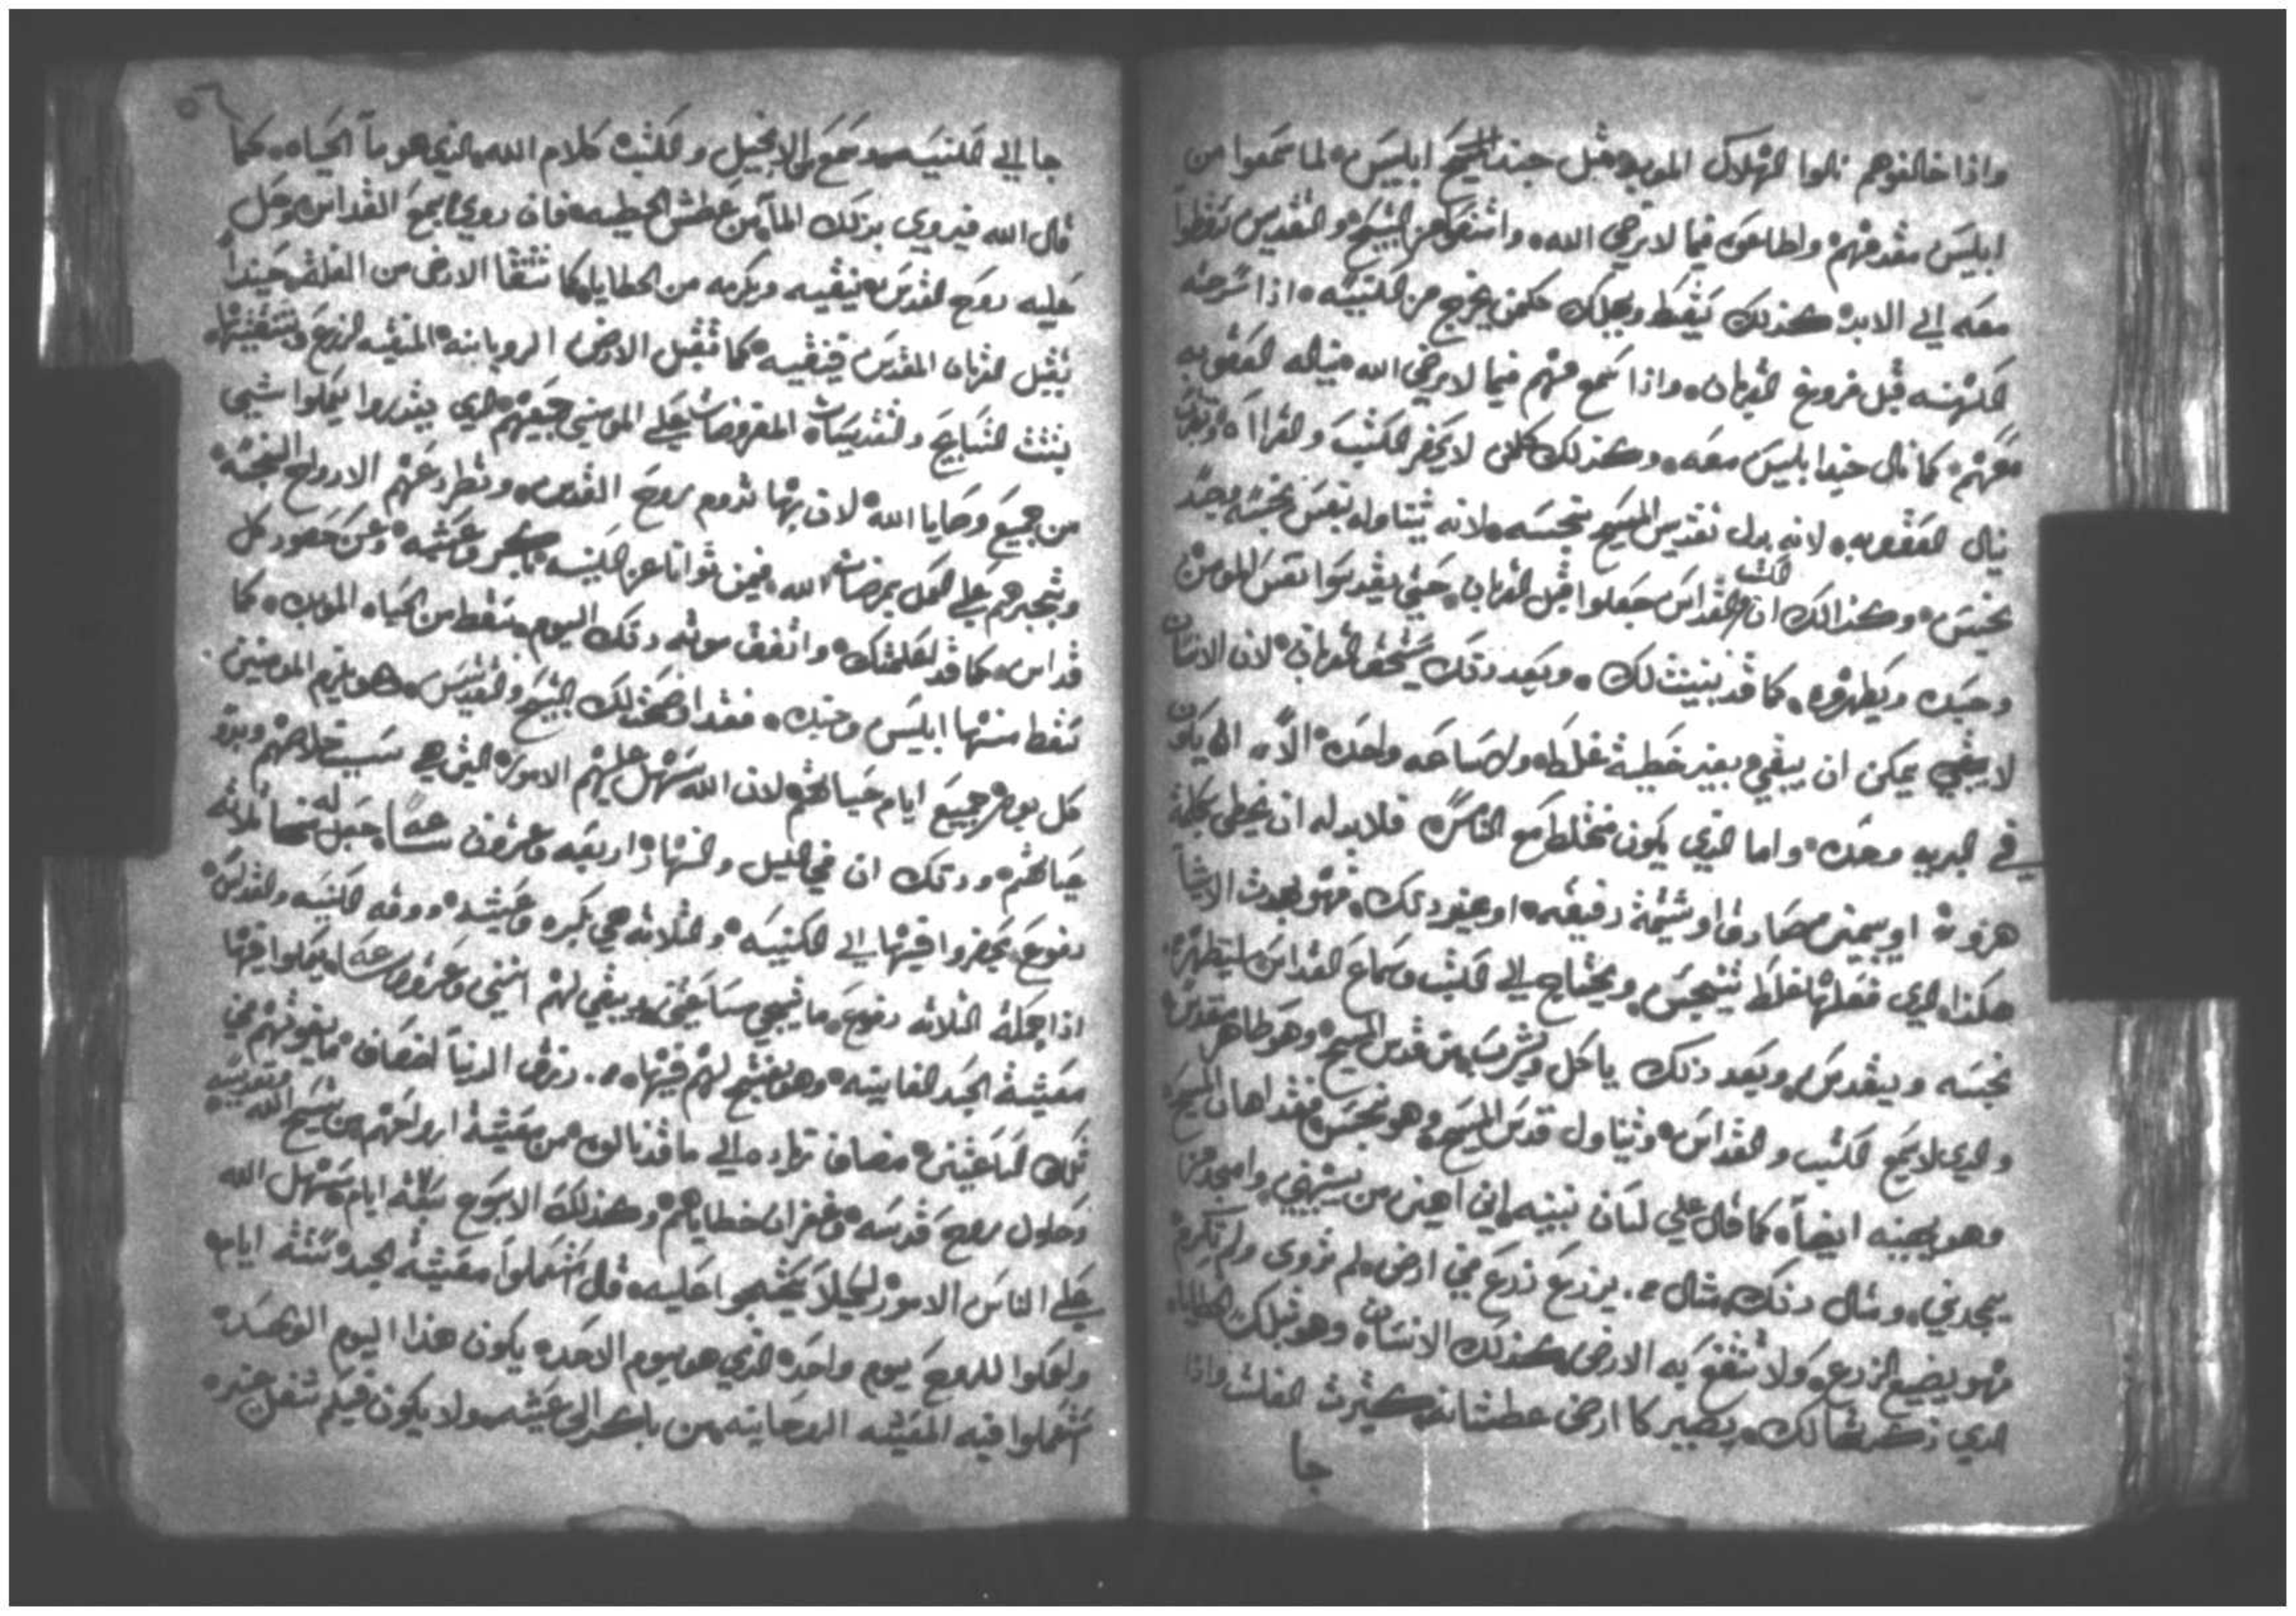 واذا خالفوهم نالوا الهلاك الموبد مثل جند ابليس لما سمعوا من
ابليس مقدمهم واطاعوه فيما لا يرضي الله واتنعوا من التسبيح والتقديس سقطوا
معه الي الابد كذلك يسقط ويهلك كلمن يخرج من الكنيسه اذا سرحته
الكهنه قبل فروغ القربان واذا سمع منهم فيما لا يرضي الله يناله العقوبه
معهم كما نال جند ابليس معه وكذلك كلمن لا يحضر الكتب والقراآه
ينال العقوبه لانه بدل تقديس المسيح نجسه لانه يتناوله بنفس نجسه وجسد
نجس وكذالك ان الكتب القداس جعلوا قبل القربان حتي يقدسوا نفس المومن
وجسده ويطهروه كما قد بينت لك وبعد ذلك يستحق القربان لان الانسان
لا يمكن ان يبقي بغير خطية غلطه ولا ساعه واحده الا ان يكون
في البريه وحده واما الذي يكون مختلط مع الناس فلا بد له ان يخطي بكلمة
هزوة او بيمين صادق او شيمة دقيقه او بغير ذلك فهو بهده الاشيا
هكذا الذي فعلها غلط يتنجس ويحتاج الي الكتب وسماع القداس ليتطهر من
نجسه ويتقدس وبعد ذلك ياكل ويشرب من قدس المسيح وهو طاهر مقدس
والدي لا يسمع الكتب والقداس ويتناول قدس المسيح وهو نجس فقد اهان المسيح
وهو يهينه ايضاً كما قال علي لسان نبيه اني اهين من يهينني وامجد من
يمجدني ومثال دلك مثال من يزرع زرع في ارض لم تروي ولم تكرم
فهو يضيع الزرع ولا تنتفع به الارض كذلك الانسان وهو بتلك الخطايا
الدي ذكرتها لك يصير كا ارض عطشانه كثيرت الغلت واذا
جا
جا الي الكنيسه وسمع الانجيل والكتب كلام الله الذي هو مآ الحياه كما
قال الله فيروي بذلك المآ من عطش الخطيه فان روي سمع القداس وحل
عليه روح القدس ينقيه ويكرمه من الخطايا كما تنقا الارض من الغلت حيندا
يقبل القربان المقدس فينقيه كما تقبل الارض الرويانه المنقيه الزرع
بتث التسابيح والتقديسات المفروضات علي المومنين جميعهم الدي يقدروا يعملوا شي
من جميع وصايا الله لان بها تدوم روح القدس وتطرد عنهم الارواح النجسه
وتجبرهم علي العمل بمرضات الله فيمن توانا عن الكنيسه باكر وعشيه وعن حضور كل
قداس كما قد اعلمتك واتفق موته دلك اليوم سقط من الحياه الموبده كما
سقط منها ابليس وجنده فقد اوضحت لك التسبيح والتقديس وهو يلزم المومنين
كل يوم جميع ايام حياتهم لان الله سهل عليهم الامور التي هي سبب خلاصهم
حياتهم ودلك ان في الليل والنهار اربعه وعشرون ساعه جعل له منها ثلاثه
دفوع يحضروا فيها الي الكنيسه والثلاثه هي بكره وعشيه ووقه الكنيسه والقداس
اذا جملة الثلاثه دفوع ما تجي ساعتين ويبقي لهم اثنين وعشرون ساعه يعملوا فيها
معيشة الجسد الفانيه وهو يفتح لهم فيها رزق الدنيا اضعاف ما يفوتهم في
تلك الساعتين مضاف زياده الي ما قد نالوه من معيشة ارواحهم من تسبيح الله وتقديسه
وحلول روح قدسه وغفران خطاياهم وكذلك الاسبوع سبعة ايام سهل الله
علي الناس الامور لكيلا يحتجوا عليه قال استعملوا معيشة الجسد ستة ايام
واعملوا للروح يوم واحده الذي هو يوم الاحد يكون هذا اليوم الوحده
استعملوا فيه المعيشه الروحانيه من باكر الي عشيه ولا يكون فيكم شغل غيره